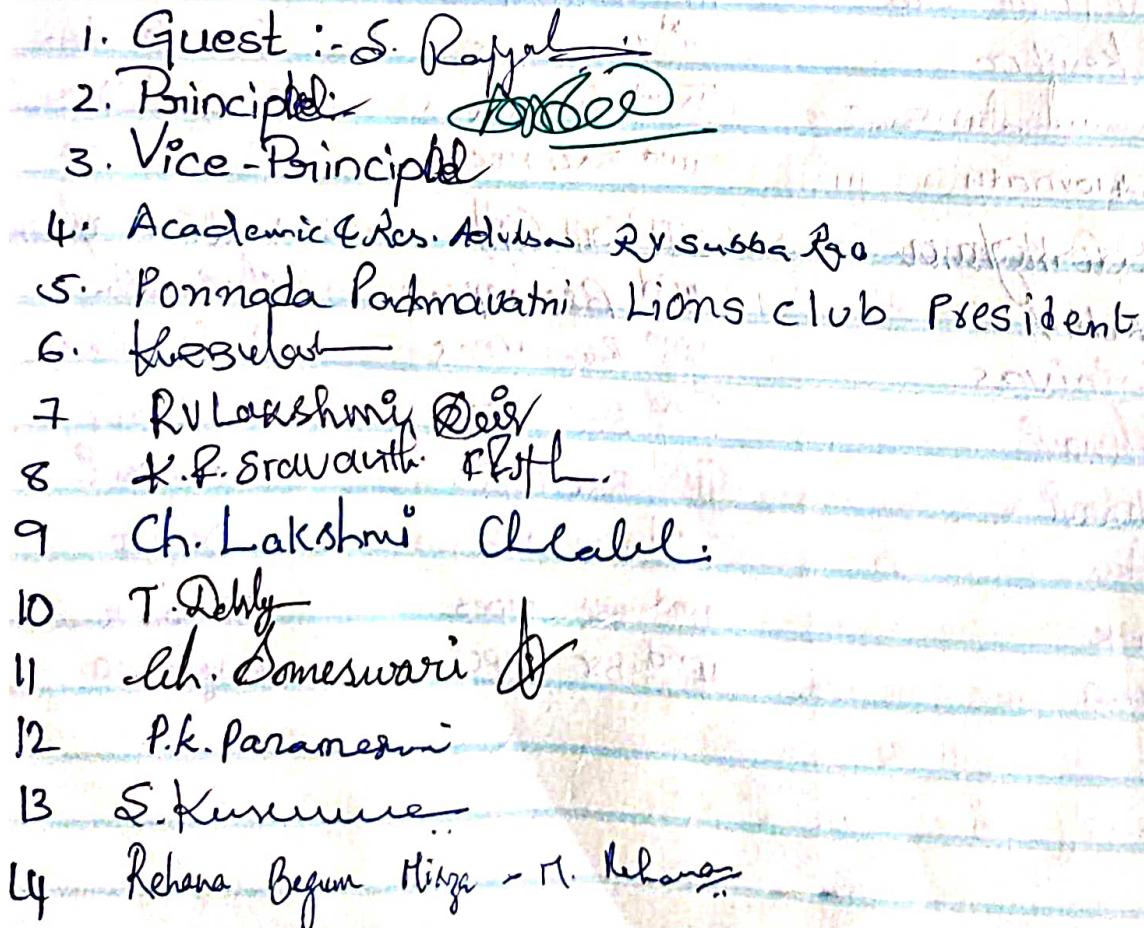 1. Guest :- S. Rajyal
2. Principal:
3. Vice-Principal
4. Academic & Res. Advisor RV Subba Rao
5. Ponnada Padmavathi Lions club President
6.
7 RV Lakshmi Devi
8 K.R. Sravanthi
9 Ch. Lakshmi
10 T. Delsly
11 Ch. Someswari
12 P.K. Parameswari
13 S. Kusuma
14 Rehana Begum Mirza - M. Rehana